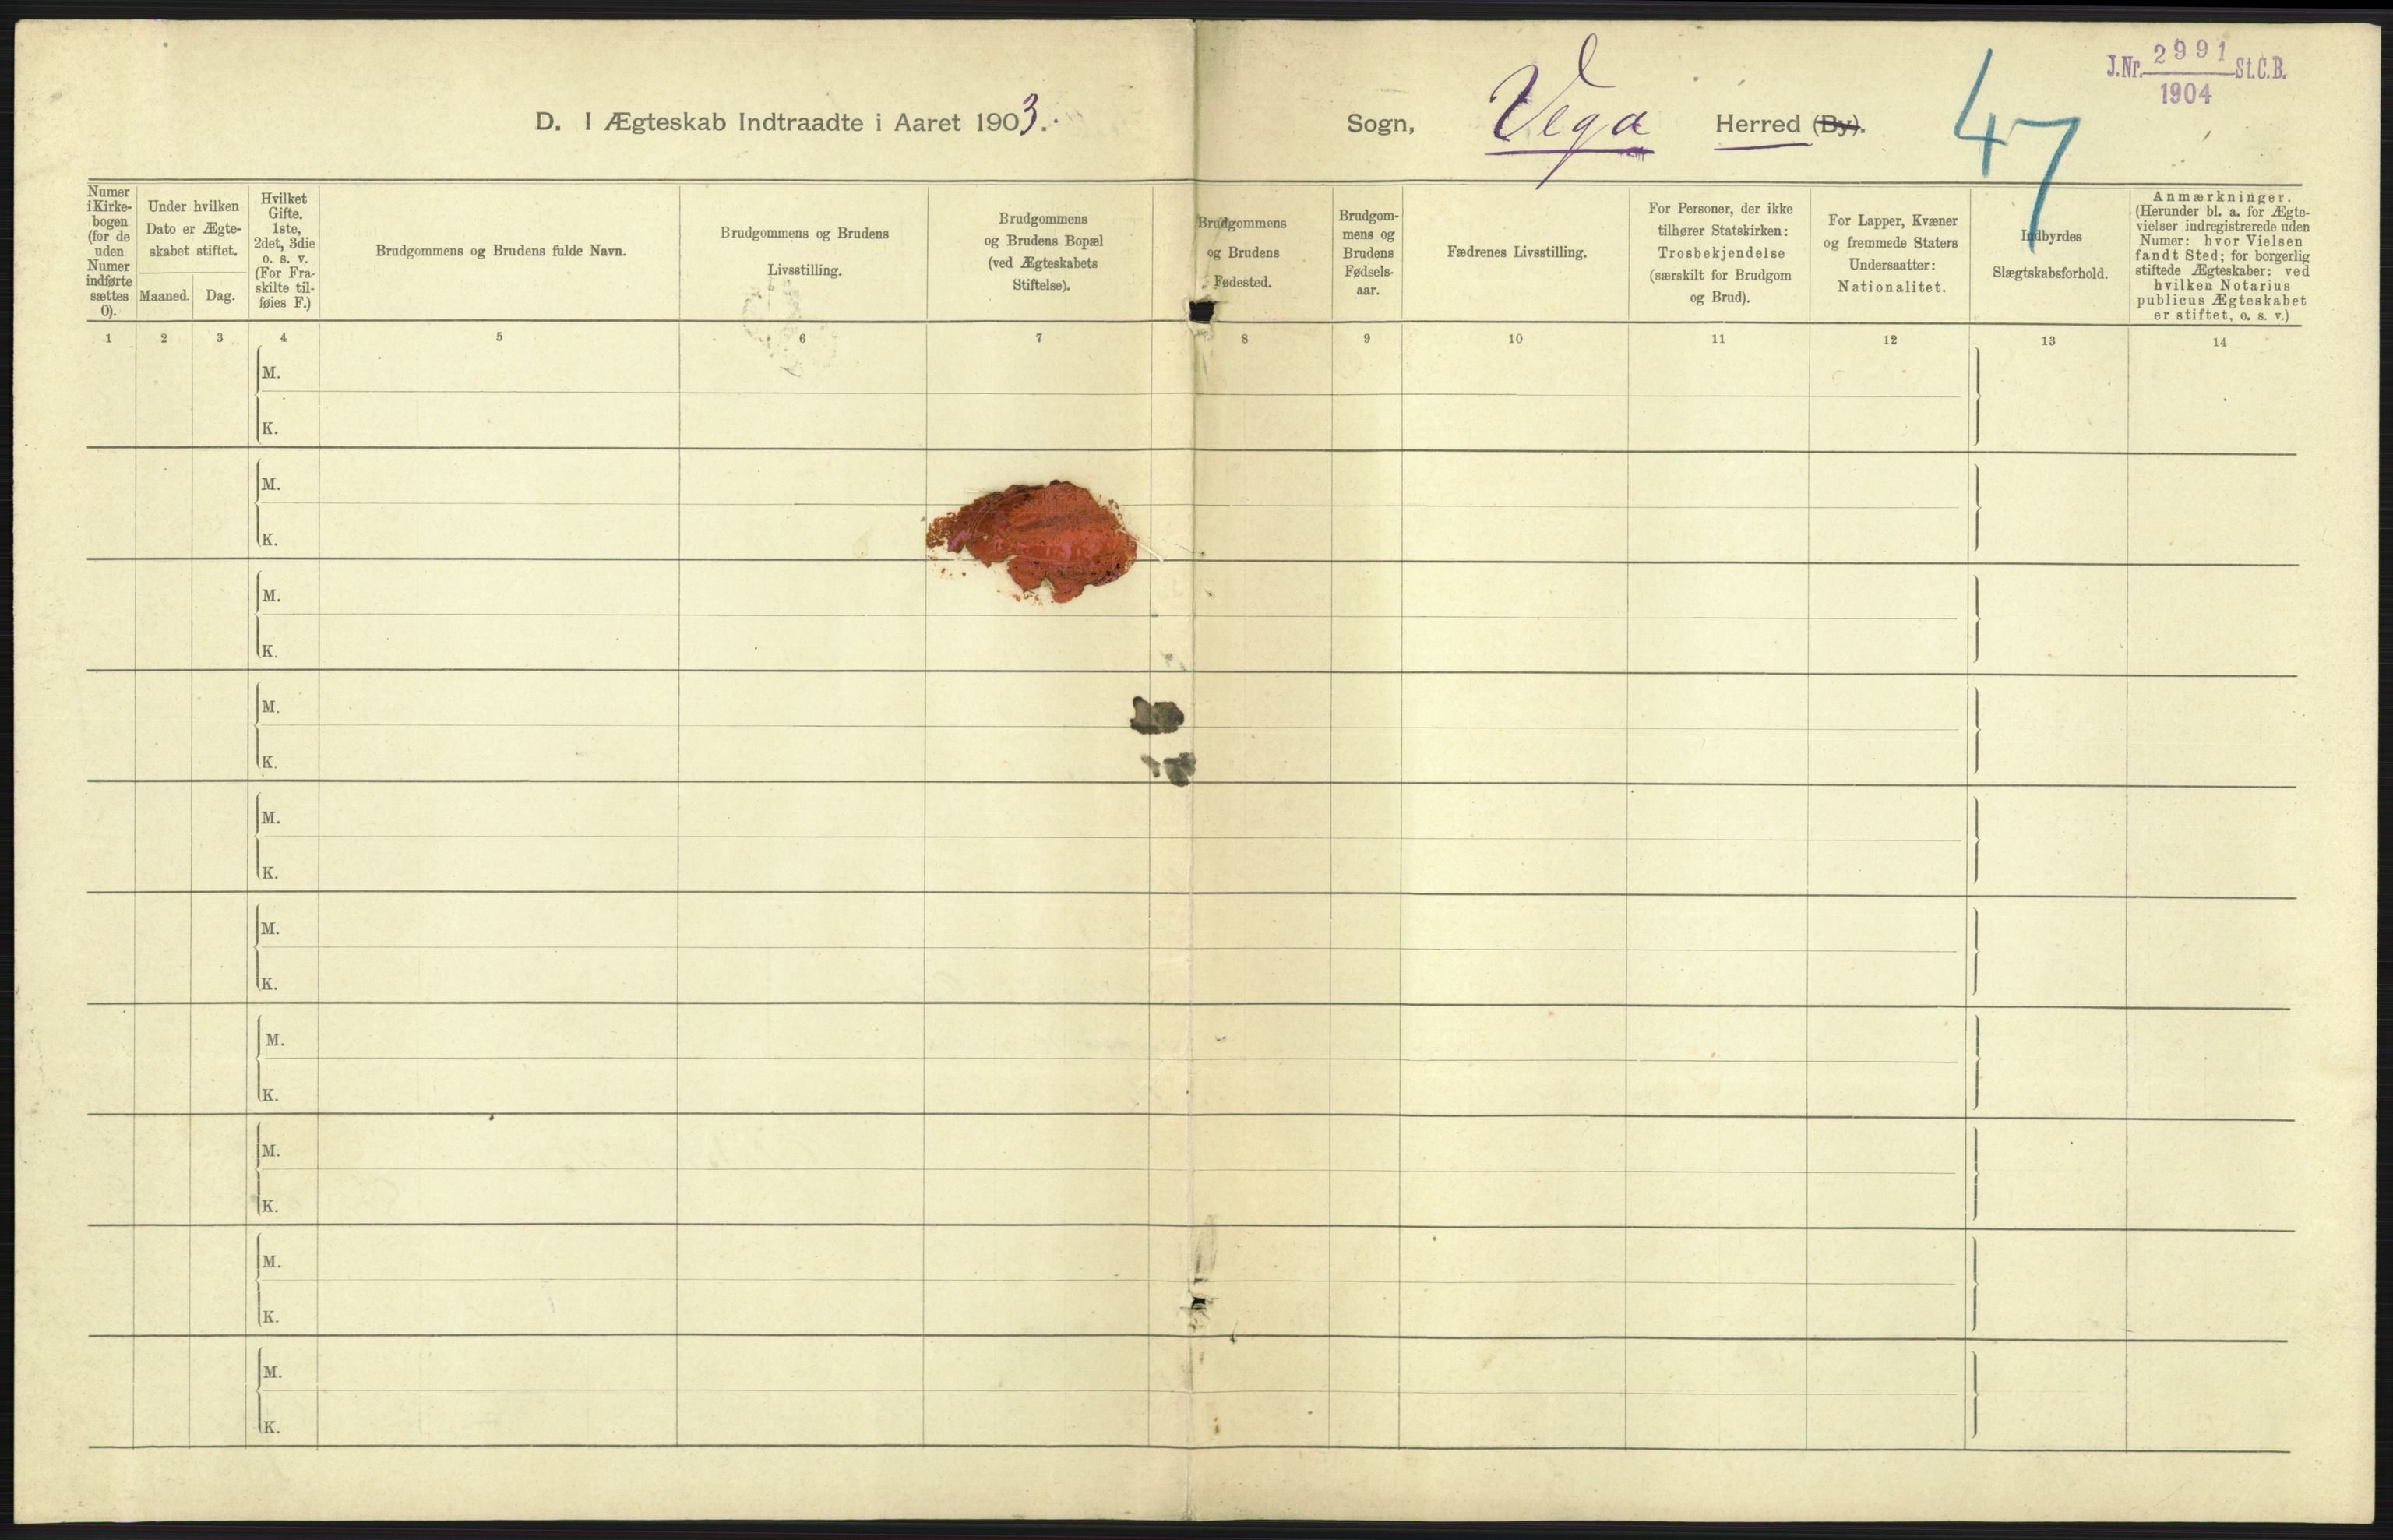 J.Nr. 2991 St.C.B.
1904
47
D. I Ægteskab Indtraadte i Aaret 1903.
Sogn, Vega Herred (By).
Numer
i Kirke-
bogen
(for de
uden
Numer
indførte
sættes
0).
Under hvilken
Dato er Ægte-
skabet stiftet.
Maaned.
Dag.
Hvilket
Gifte.
1ste,
2det, 3die
o. s. v.
(For Fra-
skilte til-
føies F.)
Brudgommens og Brudens fulde Navn.
Brudgommens og Brudens
Livsstilling.
Brudgommens
og Brudens Bopæl
(ved Ægteskabets
Stiftelse).
Brudgommens
og Brudens
Fødested.
Brudgom-
mens og
Brudens
Fødsels-
aar.
Fædrenes Livsstilling.
For Personer, der ikke
tilhører Statskirken:
Trosbekjendelse
(særskilt for Brudgom
og Brud).
For Lapper, Kvæner
og fremmede Staters
Undersaatter:
Nationalitet.
Indbyrdes
Slægtskabsforhold.
Anmærkninger.
(Herunder bl. a. for Ægte-
vielser indregistrerede uden
Numer: hvor Vielsen
fandt Sted; for borgerlig
stiftede Ægteskaber: ved
hvilken Notarius
publicus Ægteskabet
er stiftet, o. s. v.)
1 2 3 4 5 6 7 8 9 10 11 12 13 14
M.
K.
M.
K.
M.
K.
M.
K.
M.
K.
M.
K.
M.
K.
M.
K.
M.
K.
M.
K.